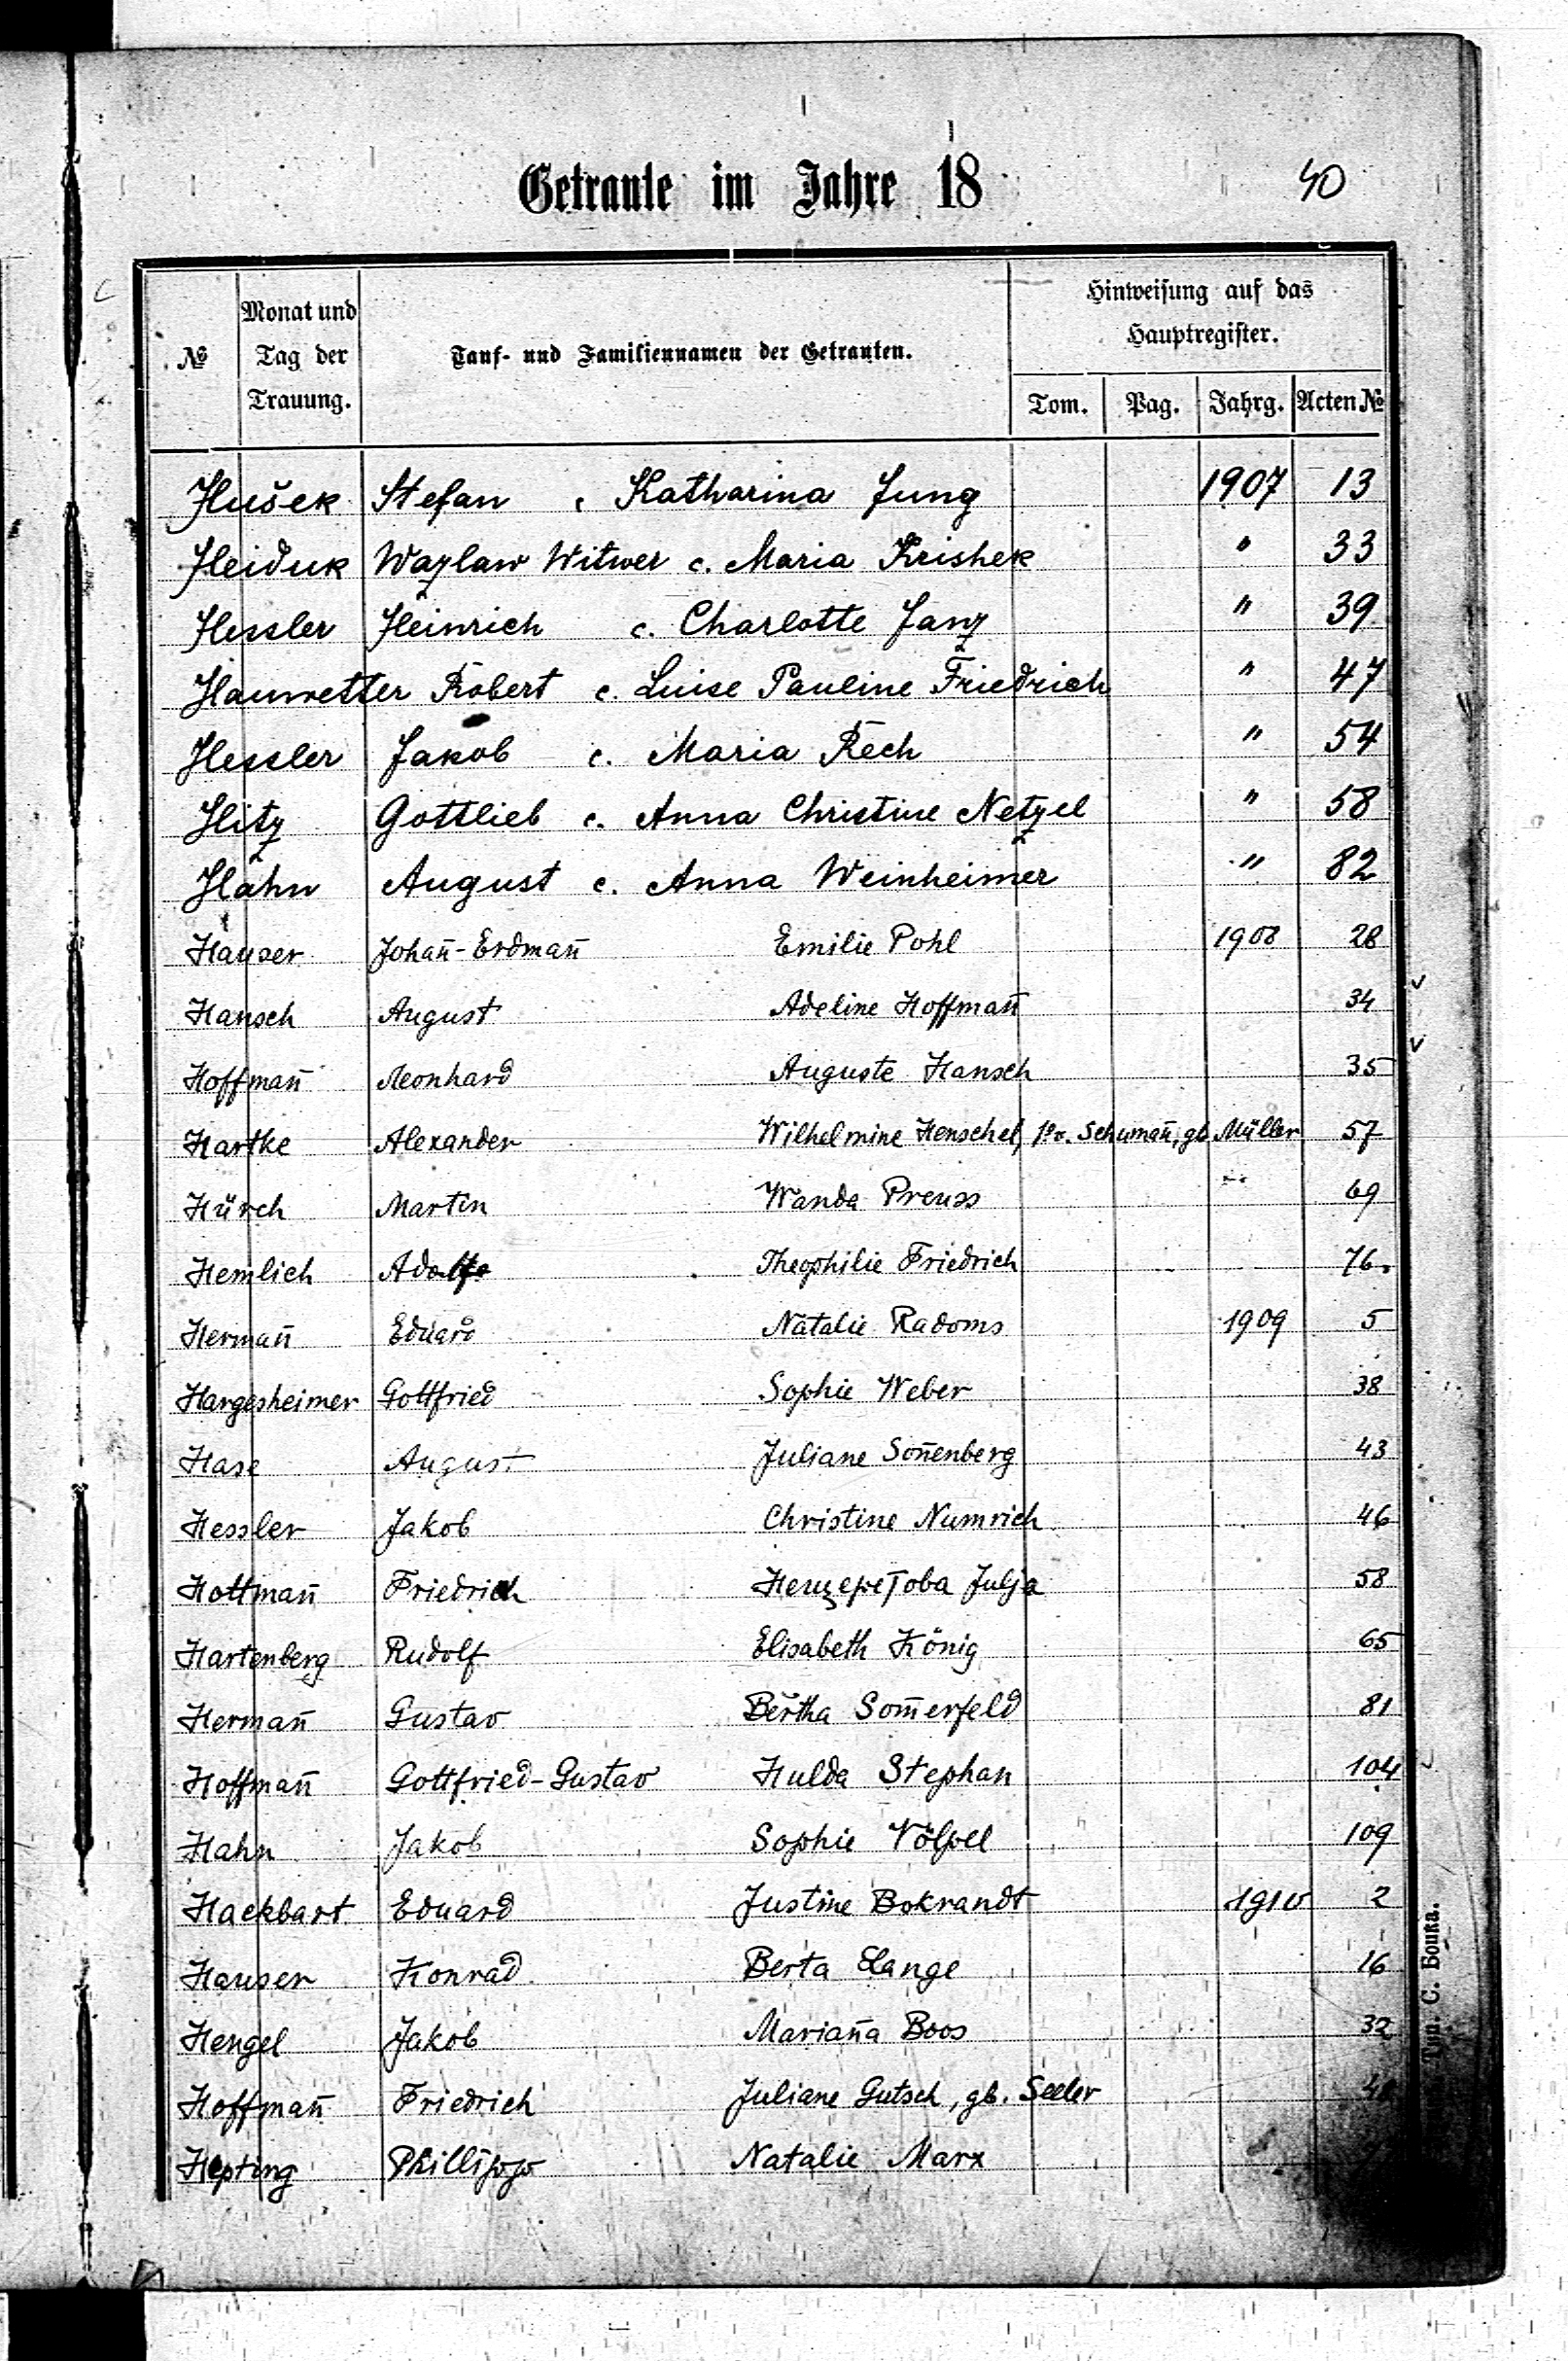 Getraute im Jahre 18
40
№ Monat und Tag der Trauung. Tauf- und Familiennamen der Getrauten. Hinweisung auf das Hauptregister.
Tom. Pag. Jahrg. Acten №
Hušek Stefan c. Katharina Jung 1907 13
Heiduk Wazlaw Witwer c. Maria Krishek " 33
Hessler Heinrich c. Charlotte Janz " 39
Hauwetter Robert c. Luise Pauline Friedrich " 47
Hessler Jakob c. Maria Rech " 54
Hitz Gottlieb c. Anna Christine Netzel " 58
Hahn August c. Anna Weinheimer " 82
Hauser Johan̄-Erdman̄ Emilie Pohl 1908 28
Hansch August Adeline Hoffman̄ 34
Hoffman̄ Leonhard Auguste Hansch 35
Hartke Alexander Wilhelmine Henschel, 1º v. Schuman̄, gb. Müller 57
Hürch Martin Wanda Preuss 69
Hemlich Adolf Theophilie Friedrich 76.
Herman̄ Eduard Natalie Radoms 1909 5
Hargesheimer Gottfried Sophie Weber 38
Hase August Juliane Son̄enberg 43
Hessler Jakob Christine Numrich 46
Hottman̄ Friedrich Julja 58
Hartenberg Rudolf Elisabeth König 65
Herman̄ Gustav Bertha Som̄erfeld 81
Hoffman̄ Gottfried-Gustav Hulda Stephan 104
Hahn Jakob Sophie Völpel 109
Hackbart Eduard Justine Bokrandt 1910 2
Hauser Konrad Berta Lange 16
Hengel Jakob Marian̄a Boos 32
Hoffman̄ Friedrich Juliane Gutsch, gb. Seeler
Hepting Phillipp Natalie Marx
Тип. С. Бонка.